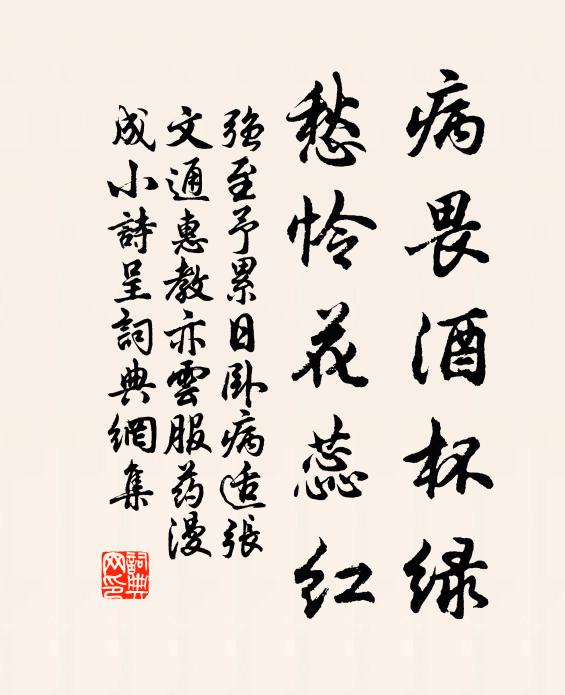 病畏酒杯绿
愁怜花蕊红
强至予累日卧病适張
文通惠教亦雲服药漫
成小詩呈詞典網集
詞典网印